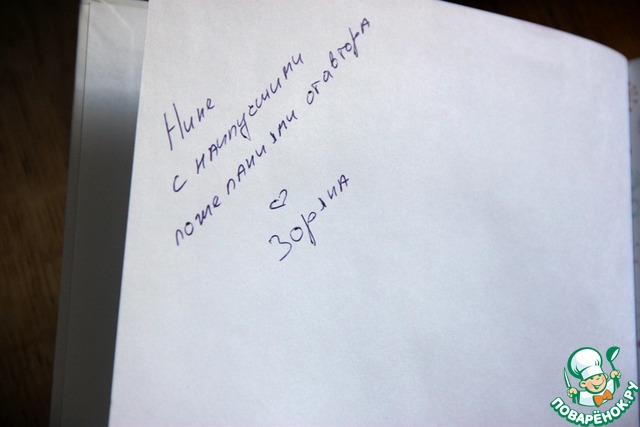 Нине
с наилучшими
пожеланиями от автора
Зоряна
ПОВАРЁНОК.РУ